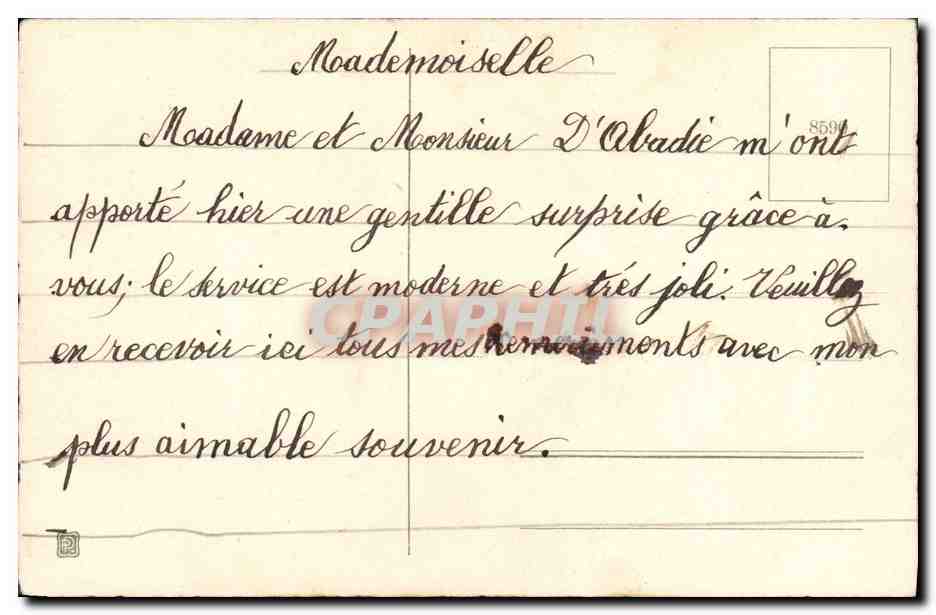 Mademoiselle
8590
Madame et Monsieur D'Abadie m'ont
apporté hier une gentille surprise grâce à
vous; le service est moderne et trés joli. Veuillez
CPAPHIL
en recevoir ici tous mes remerciments avec mon
plus aimable souvenir.